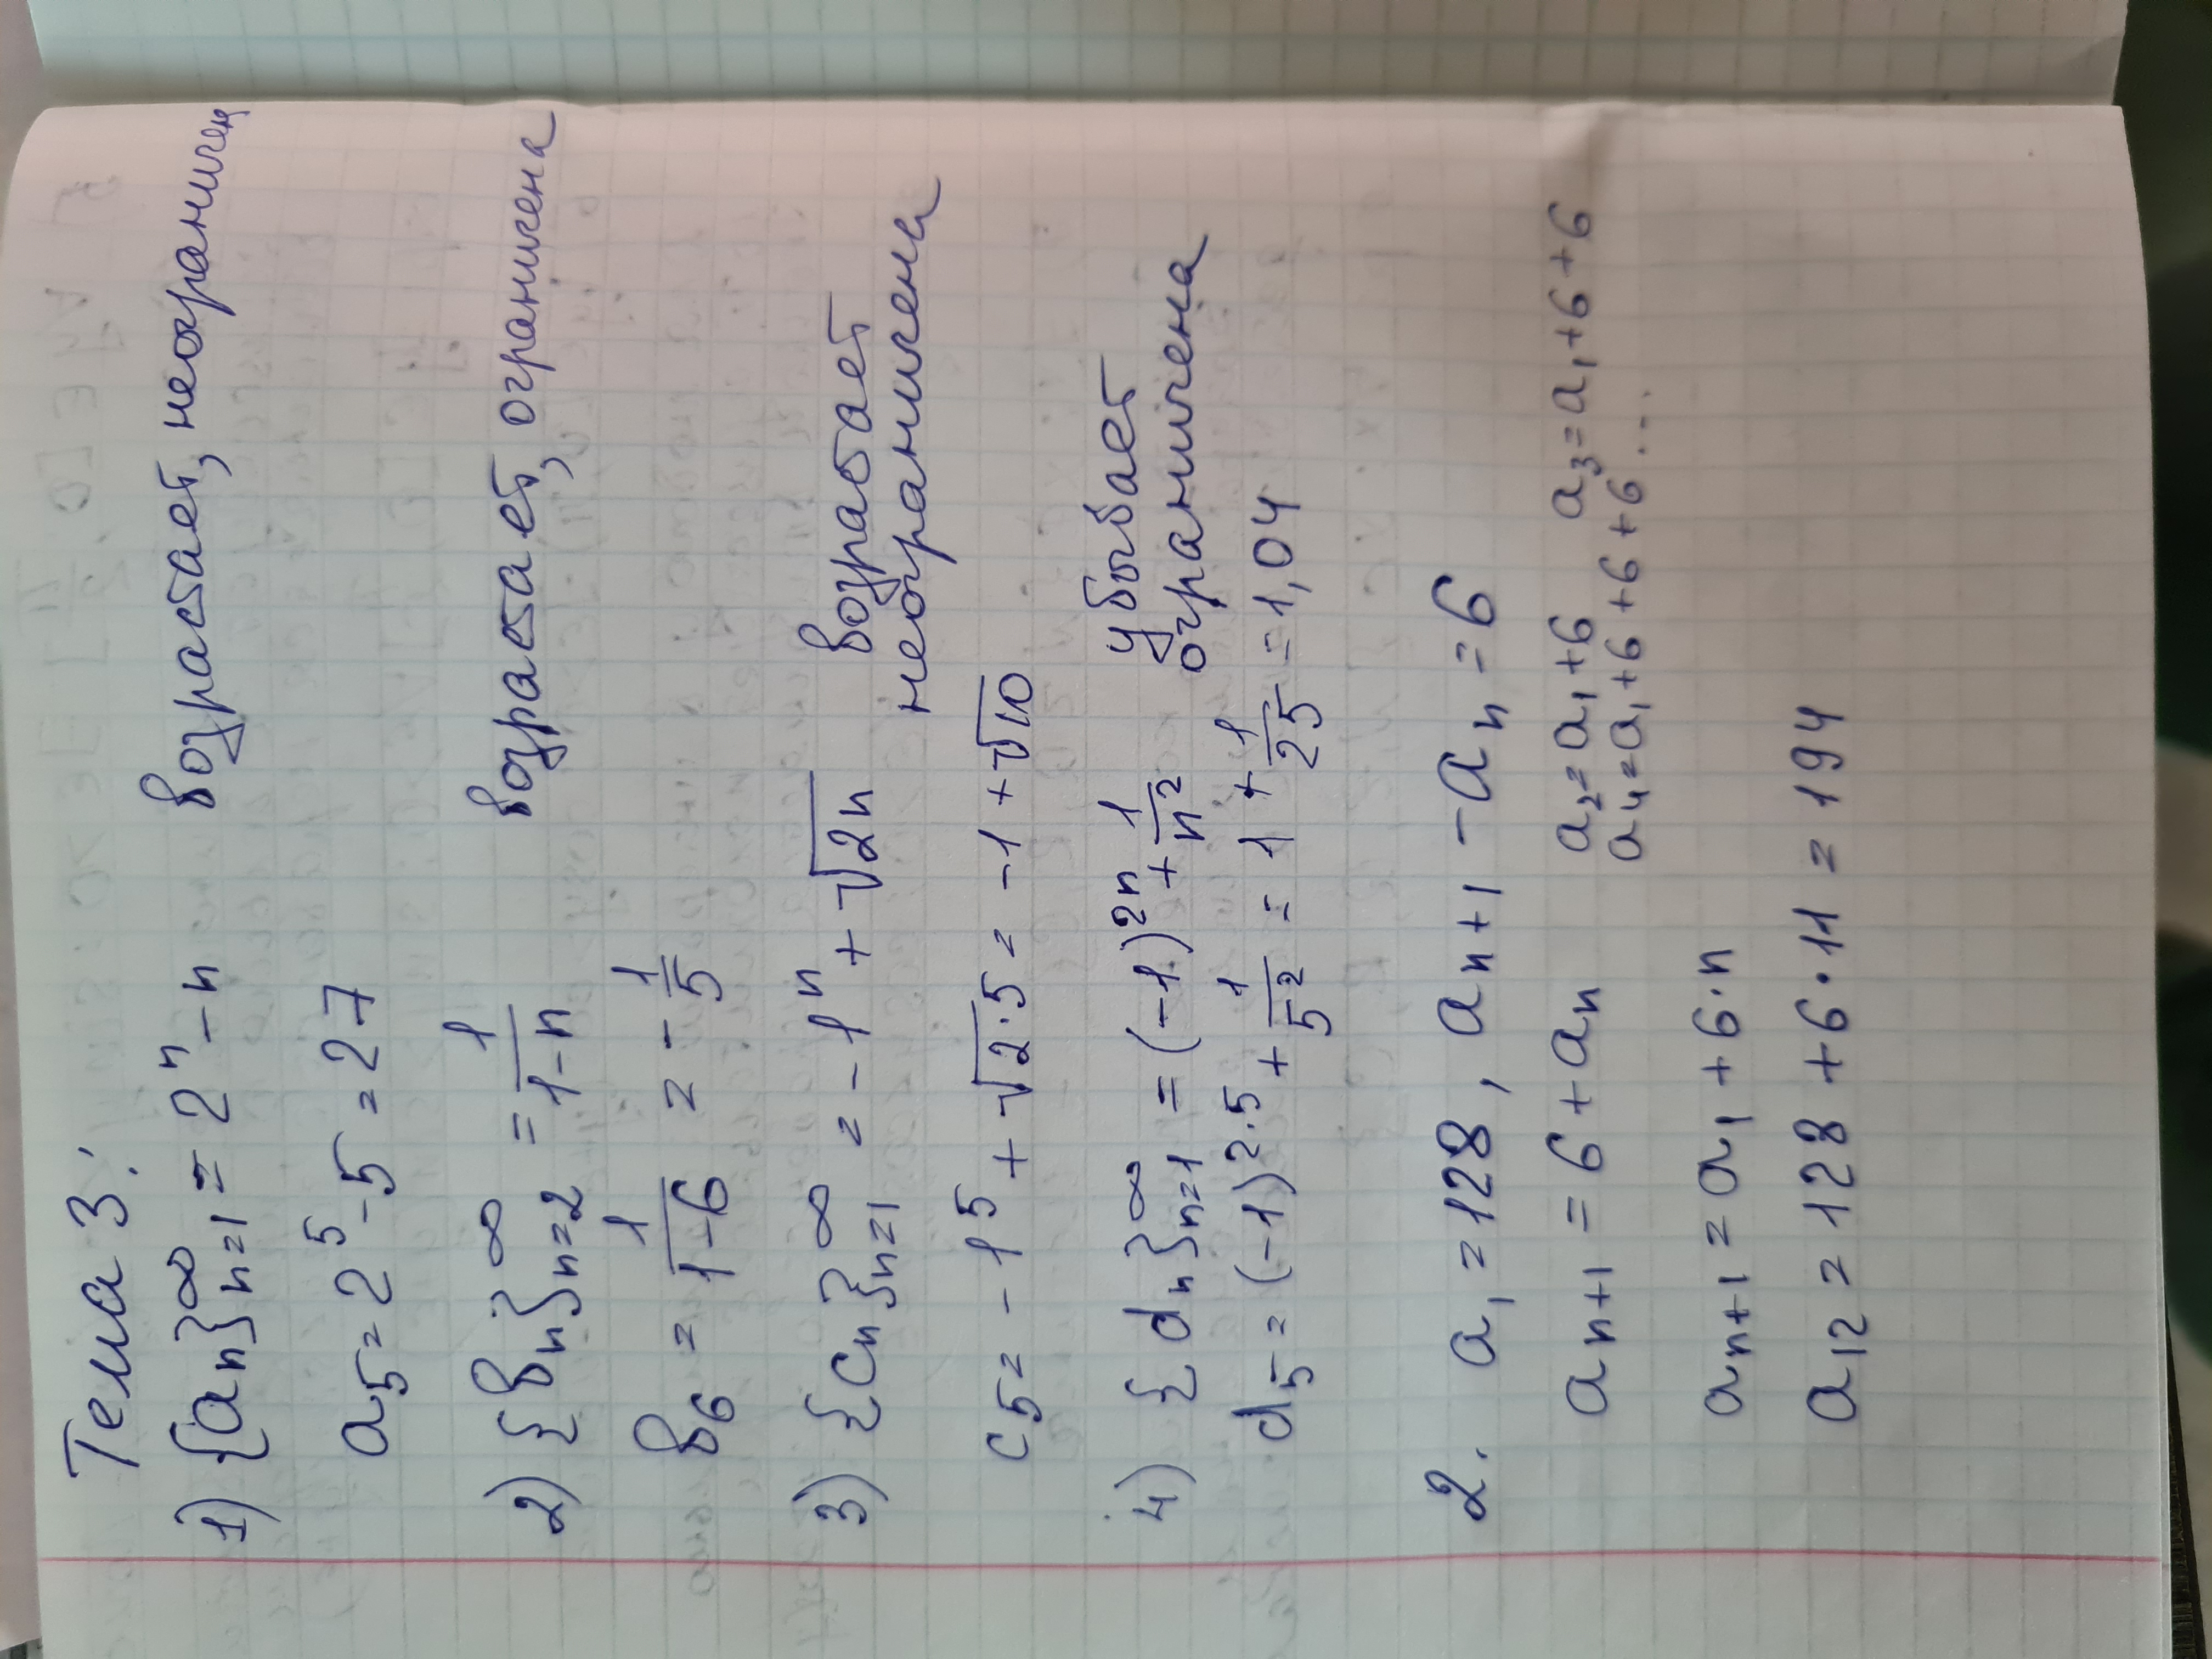 Тема 3:
1) {aₙ}ₙ₌₁^∞ = 2ⁿ - n возрастает, неограничен
a₅ = 2⁵ - 5 = 27
2) {bₙ}ₙ₌₂^∞ = 1/(1-n) возрастает, ограничена
b₆ = 1/(1-6) = -1/5
3) {cₙ}ₙ₌₁^∞ = -1ⁿ + √(2n) возрастает
неограничена
c₅ = -1⁵ + √(2·5) = -1 + √10
4) {dₙ}ₙ₌₁^∞ = (-1)²ⁿ + 1/n² убывает
ограничена
d₅ = (-1)^(2·5) + 1/5² = 1 + 1/25 = 1,04
2. a₁ = 128, aₙ₊₁ - aₙ = 6
aₙ₊₁ = 6 + aₙ a₂ = a₁ + 6 a₃ = a₁ + 6 + 6
a₄ = a₁ + 6 + 6 + 6 ...
aₙ₊₁ = a₁ + 6·n
a₁₂ = 128 + 6·11 = 194